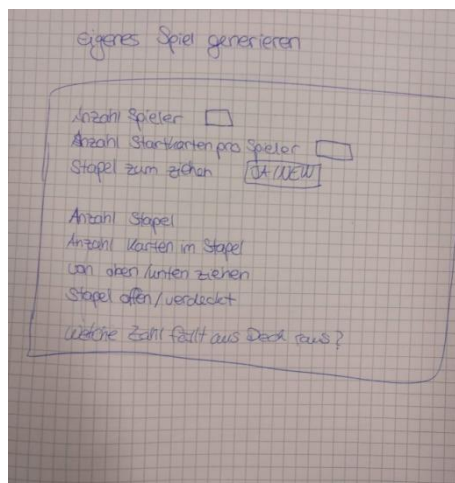 eigenes Spiel generieren
Anzahl Spieler
Anzahl Startkarten pro Spieler
Stapel zum ziehen JA/NEIN
Anzahl Stapel
Anzahl Karten im Stapel
von oben/unten ziehen
Stapel offen/verdeckt
Welche Zahl fällt aus Deck raus?